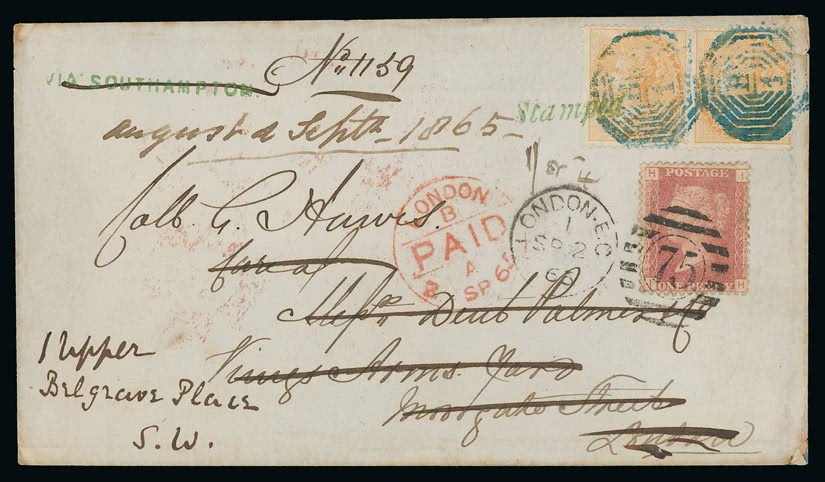 VIA SOUTHAMPTON.
No. 1159
Stamped
august & Septh - 1865 -
POSTAGE
H I
I H
ONE PENNY
75
LONDON
B
PAID
A
2 SP 65
LONDON·E.C
1
SP 2
65
B
1
B
1
Coll. G. Hawes.
care of
Messrs Dent Palmer &
Kings Arms Yard
Moorgate Street
London
1 Upper
Belgrave Place
S.W.